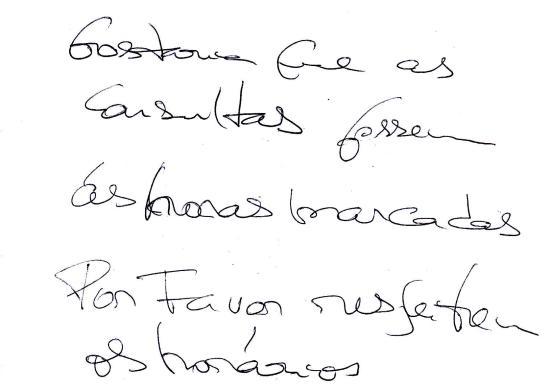 Gostaria que as
Consultas fossem
ás horas marcadas
Por Favor respeitem
os horários